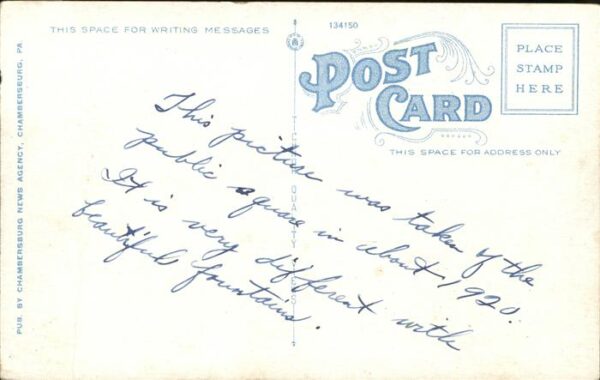 THIS SPACE FOR WRITING MESSAGES
134150
POST
CARD
PLACE
STAMP
HERE
THIS SPACE FOR ADDRESS ONLY
PUB. BY CHAMBERSBURG NEWS AGENCY, CHAMBERSBURG, PA
This picture was taken of the
public square in about 1920.
It is very different with
beautiful fountains.